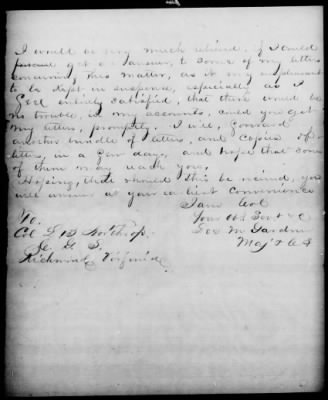 I would be very much relieved, if I could
get an answer, to some of my letters
concerning this matter, as it is very unpleasant
to be kept in suspense, especially as I
feel entirely satisfied, that there would be
no trouble, in my accounts, could you get
my letters, promptly. I will, forward
another bundle of letters, and copies of
letters, in a few days, and hope that some
of them may reach you,
Hoping, that should this be received, you
will answer at your earliest convenience
I am Col
Your Obt Servt &c
Geo M
Maj & C S
To.
Col L B Northrop.
C. G. S.
Richmond Virginia